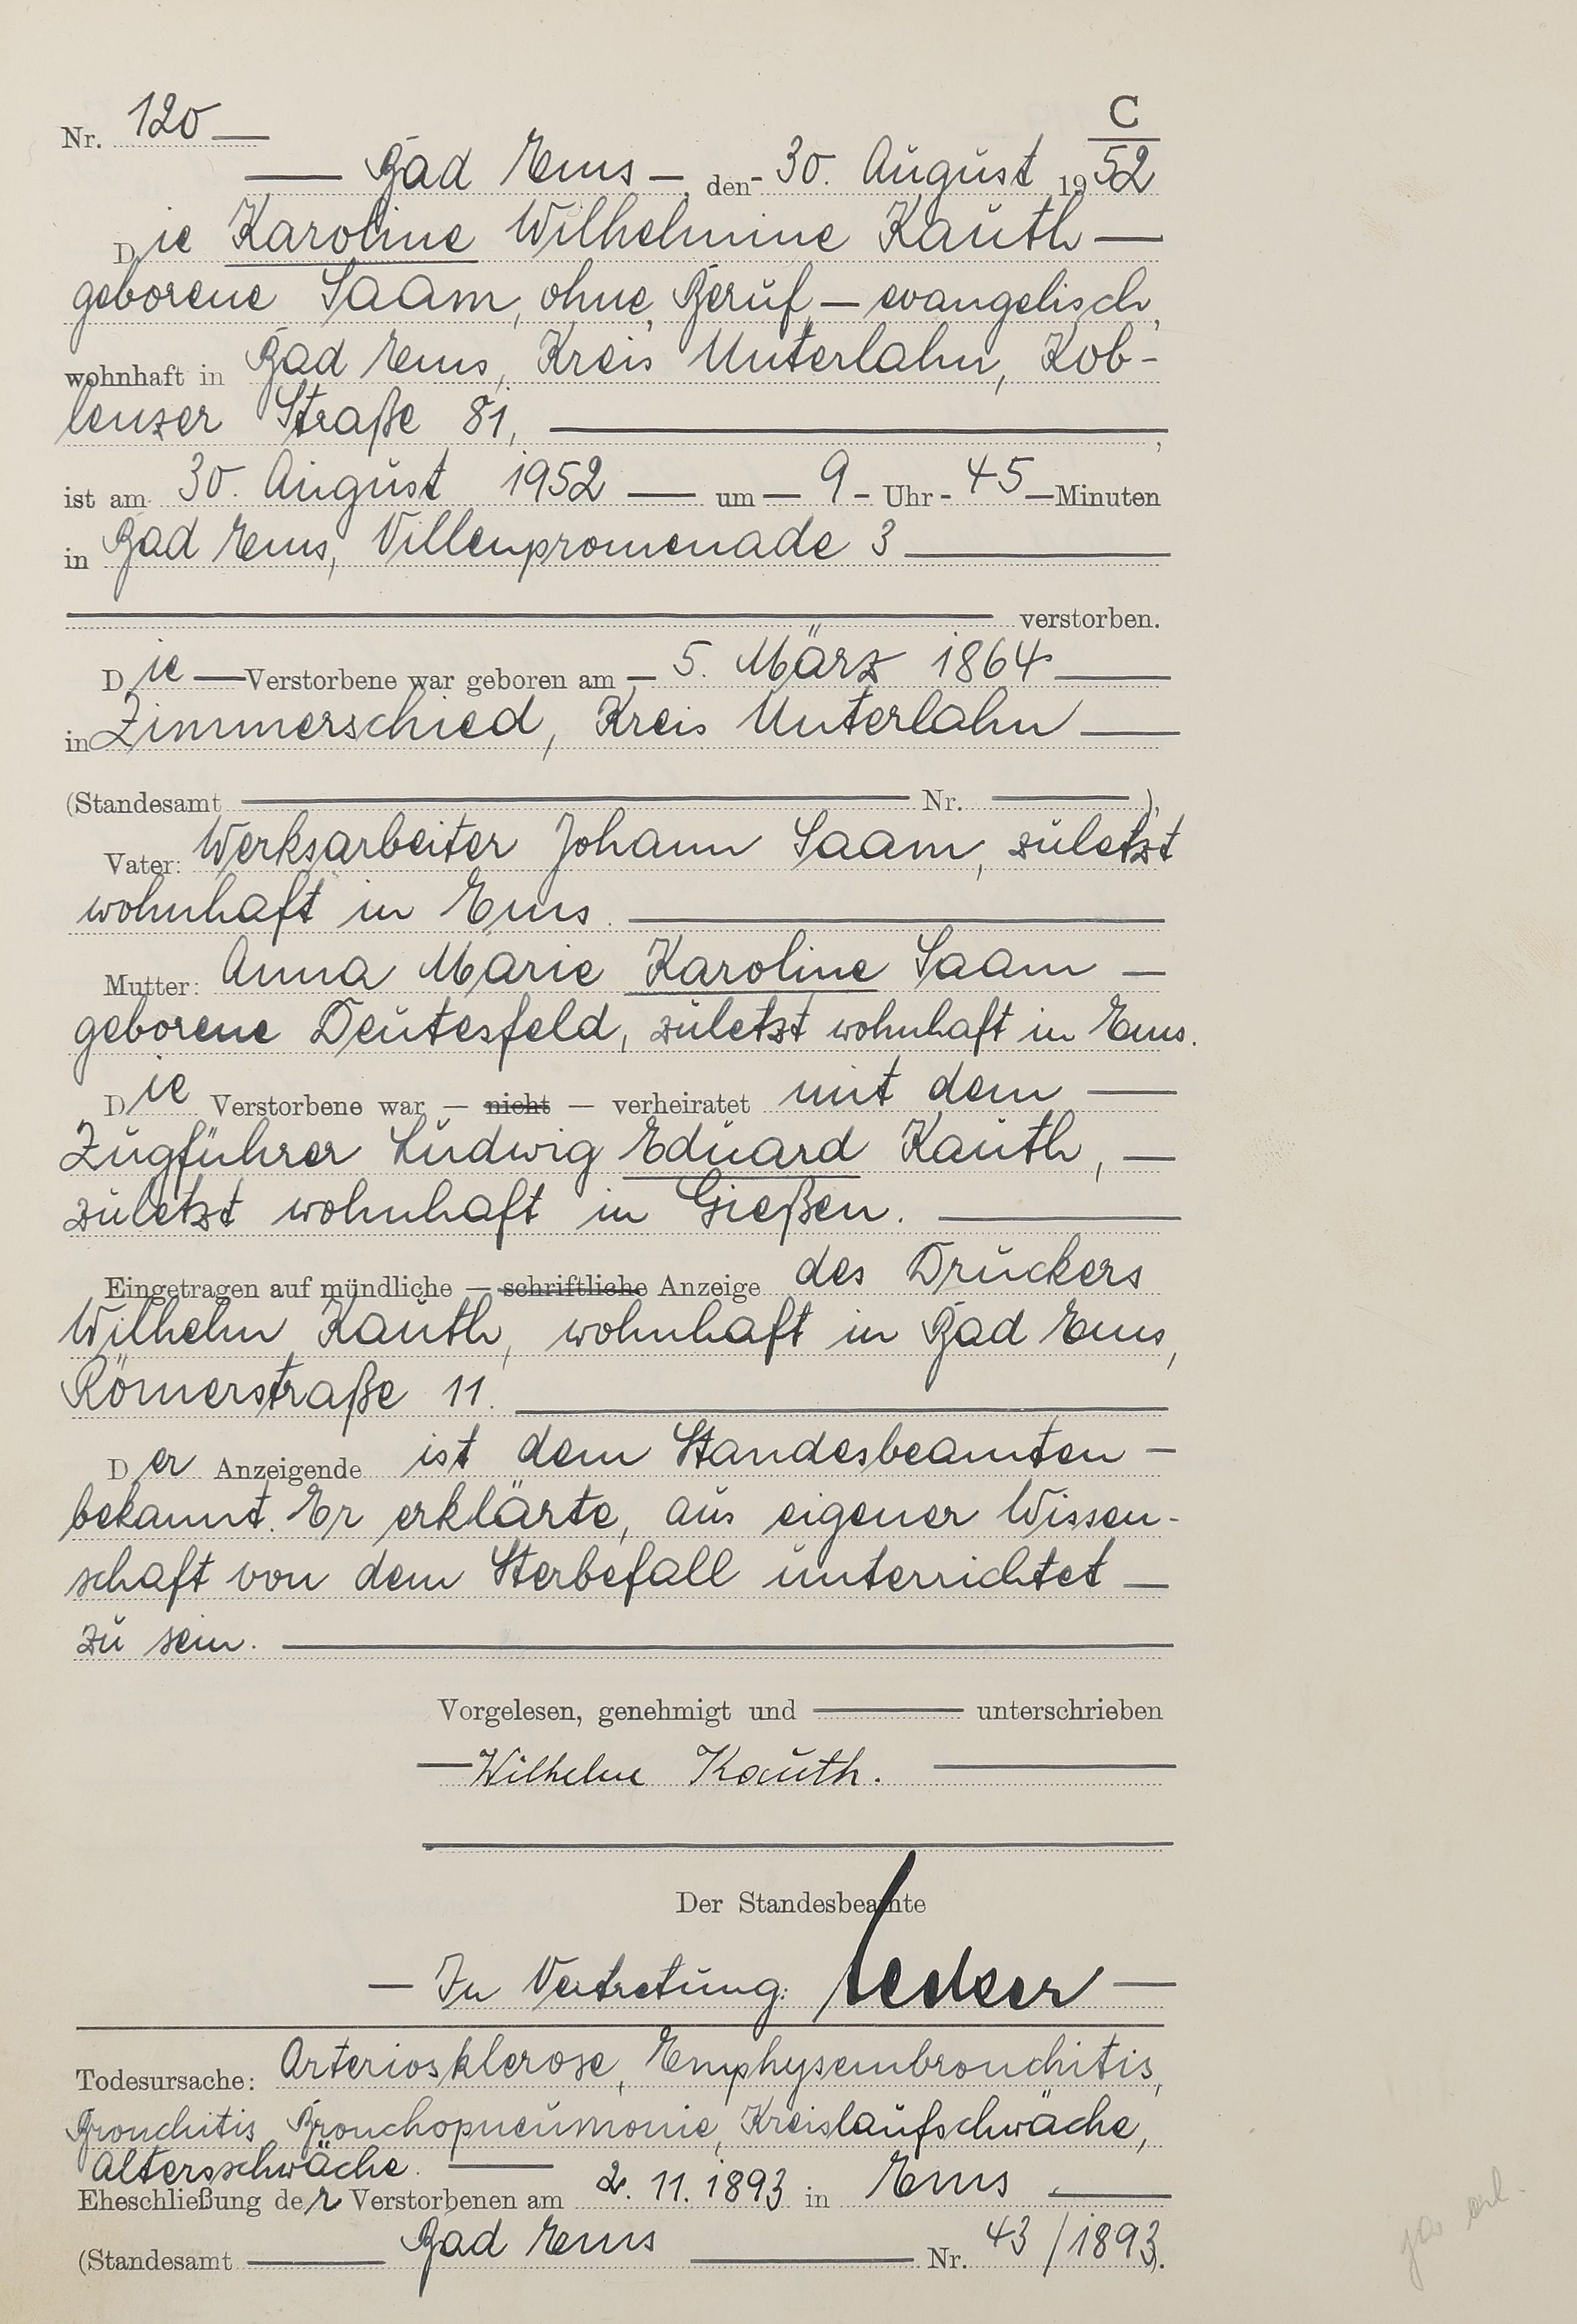 C
Nr. 120
Bad Ems, den 30. August 1952
Die Karoline Wilhelmine Kauth
geborene Saam, ohne Beruf, evangelisch,
wohnhaft in Bad Ems, Kreis Unterlahn, Kob-
lenzer Straße 81,
ist am 30. August 1952 um 9 Uhr 45 Minuten
in Bad Ems, Villenpromenade 3
verstorben.
Die Verstorbene war geboren am 5. März 1864
in Zimmerschied, Kreis Unterlahn
(Standesamt Nr. ),
Vater: Werksarbeiter Johann Saam, zuletzt
wohnhaft in Ems.
Mutter: Anna Marie Karoline Saam
geborene Deutesfeld, zuletzt wohnhaft in Ems.
Die Verstorbene war — nicht — verheiratet mit dem
Zugführer Ludwig Eduard Kauth,
zuletzt wohnhaft in Gießen.
Eingetragen auf mündliche — schriftliche Anzeige des Druckers
Wilhelm Kauth, wohnhaft in Bad Ems,
Römerstraße 11.
Der Anzeigende ist dem Standesbeamten
bekannt. Er erklärte, aus eigener Wissen-
schaft von dem Sterbefall unterrichtet
zu sein.
Vorgelesen, genehmigt und unterschrieben
Wilhelm Kauth.
Der Standesbeamte
In Vertretung:
Todesursache: Arteriosklerose, Emphysembronchitis,
Bronchitis, Bronchopneumonie, Kreislaufschwäche,
Altersschwäche.
Eheschließung der Verstorbenen am 2. 11. 1893 in Ems
(Standesamt Bad Ems Nr. 43/1893).